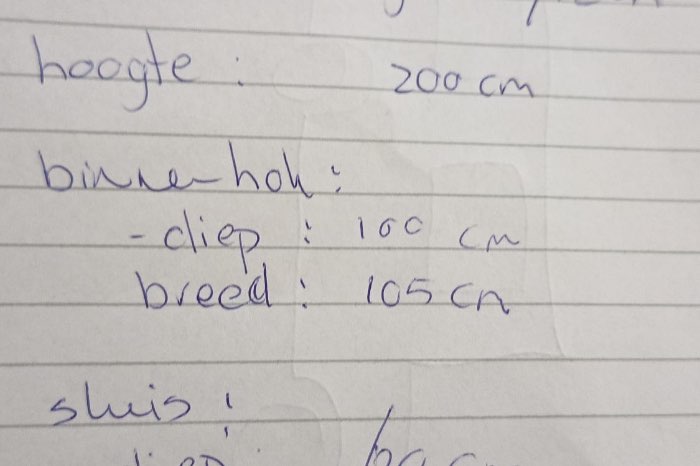 hoogte : 200 cm
binnenhok :
- diep : 100 cm
breed : 105 cm
sluis :
diep